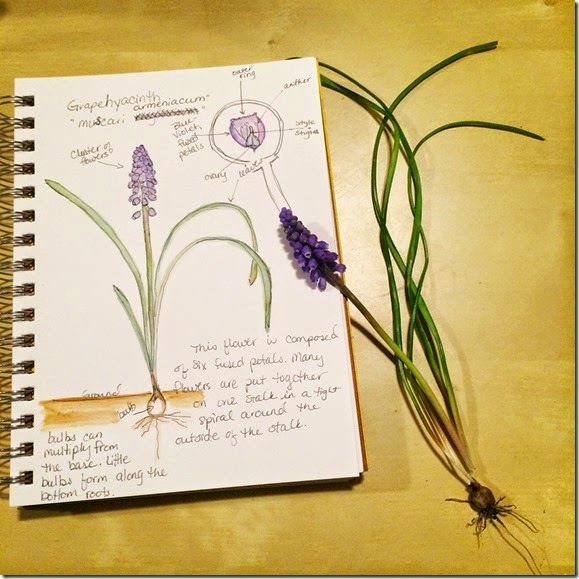 Grapehyacinth
"muscari armeniacum"
Cluster of
flowers
outer
ring
anther
Blue
Violet,
fused
petals
style
Stigma
ovary
leaves
ground
bulb
This flower is composed
of six fused petals. Many
flowers are put together
on one stalk in a tight
spiral around the
outside of the stalk.
bulbs can
multiply from
the base. Little
bulbs form along the
bottom roots.